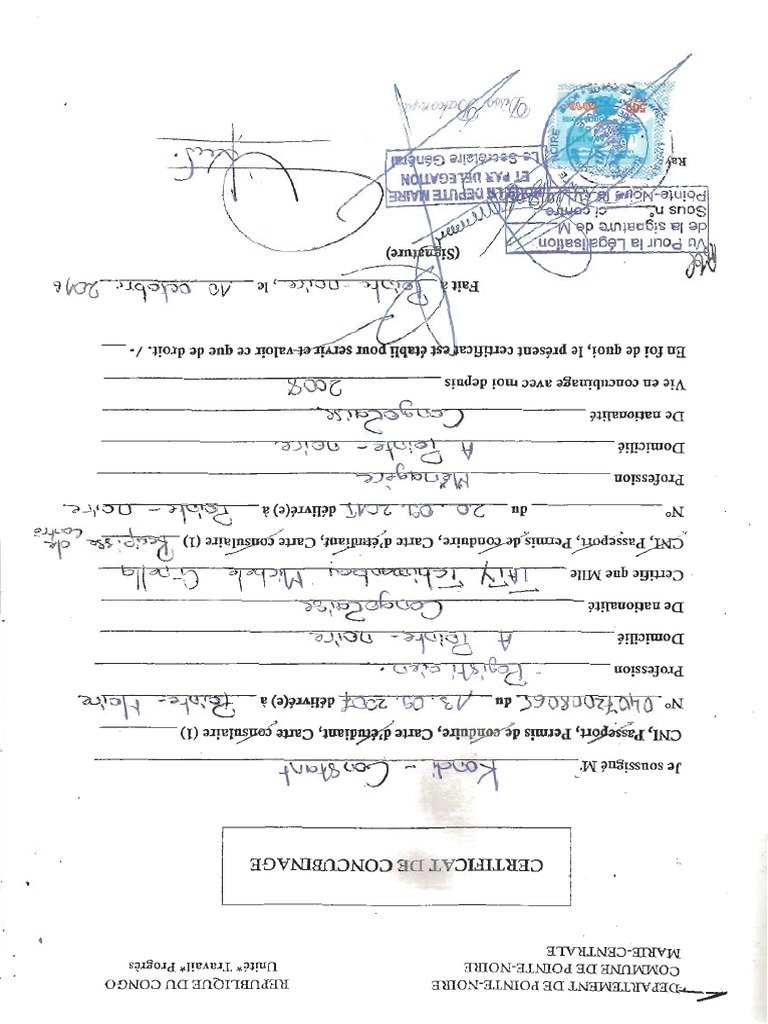 DEPARTEMENT DE POINTE-NOIRE
COMMUNE DE POINTE-NOIRE
MARIE-CENTRALE
REPUBLIQUE DU CONGO
Unité* Travail* Progrès
CERTIFICAT DE CONCUBINAGE
Je soussigné M' Kondi - Constant
CNI, Passeport, Permis de conduire, Carte d'étudiant, Carte consulaire (1)
N° du 13.09.2007 délivré(e) à Pointe-Noire
Profession
Domicilié A Pointe-noire
De nationalité Congolaise
Certifie que Mlle TATY Tchimambou Michele Gisella
CNI, Passeport, Permis de conduire, Carte d'étudiant, Carte consulaire (1) Recipisse de
N° du 20.09.2015 délivré(e) à Pointe-noire
Profession Ménagère
Domicilié A Pointe-noire
De nationalité Congolaise
Vie en concubinage avec moi depuis 2008
En foi de quoi, le présent certificat est établi pour servir et valoir ce que de droit. /-
Fait à Pointe-noire, le 10 octobre 2016
(Signature)
Vu Pour la Légalisation
de la signature de M
Sous n° ci contre
Pointe-Noire le
ET PAR DELEGATION
Le Secrétaire Général